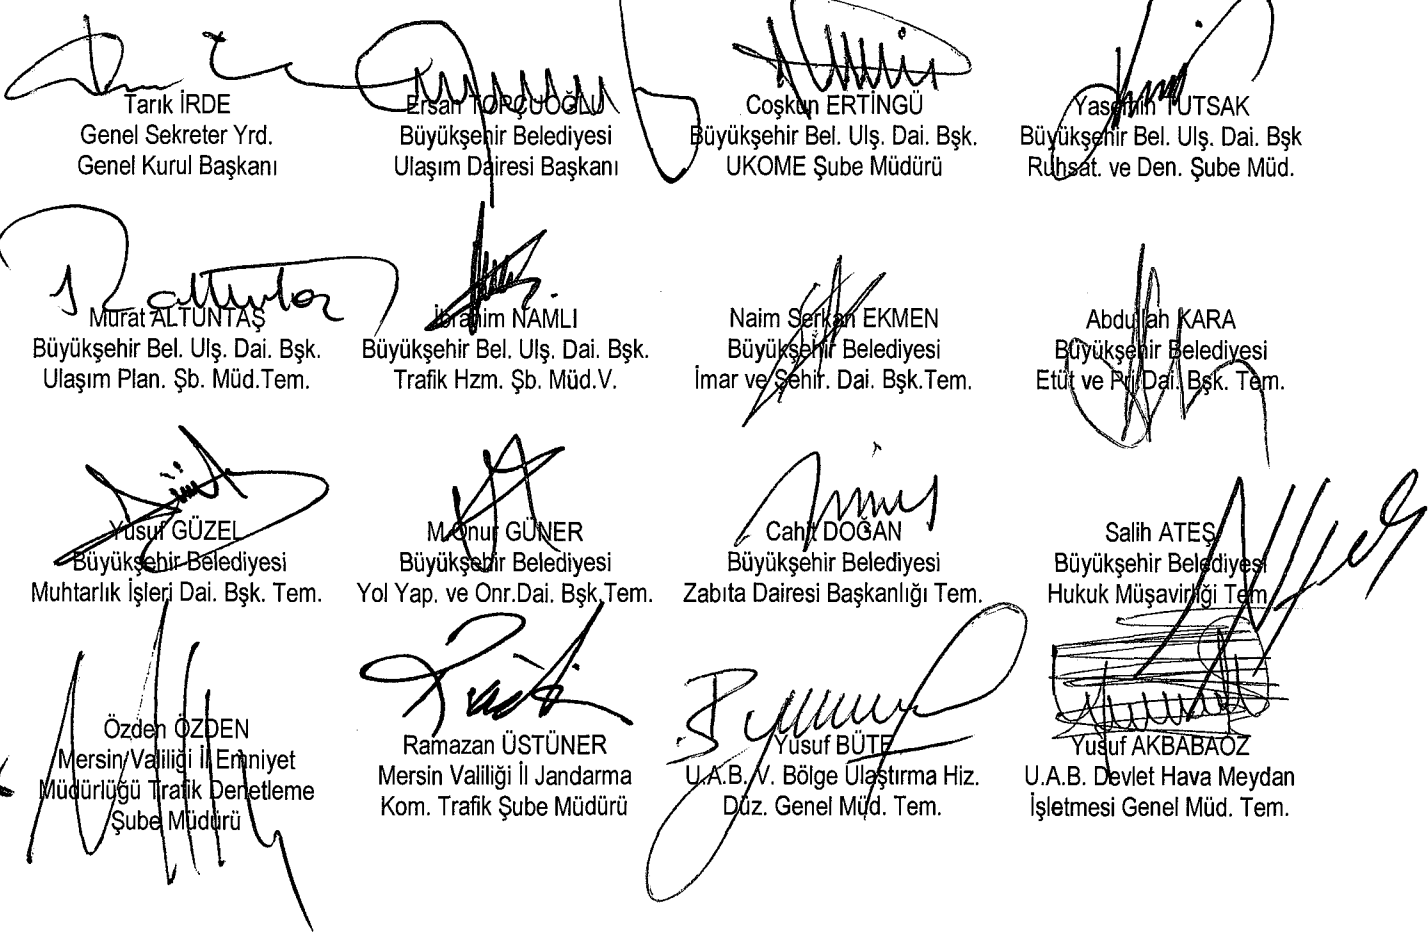 Tarık İRDE
Genel Sekreter Yrd.
Genel Kurul Başkanı
Ersan TOPÇUOĞLU
Büyükşehir Belediyesi
Ulaşım Dairesi Başkanı
Coşkun ERTİNGÜ
Büyükşehir Bel. Ulş. Dai. Bşk.
UKOME Şube Müdürü
Yasemin TUTSAK
Büyükşehir Bel. Ulş. Dai. Bşk
Ruhsat. ve Den. Şube Müd.
Murat ALTUNTAŞ
Büyükşehir Bel. Ulş. Dai. Bşk.
Ulaşım Plan. Şb. Müd.Tem.
İbrahim NAMLI
Büyükşehir Bel. Ulş. Dai. Bşk.
Trafik Hzm. Şb. Müd.V.
Naim Serkan EKMEN
Büyükşehir Belediyesi
İmar ve Şehir. Dai. Bşk.Tem.
Abdullah KARA
Büyükşehir Belediyesi
Etüt ve Prj Dai. Bşk. Tem.
Yusuf GÜZEL
Büyükşehir Belediyesi
Muhtarlık İşleri Dai. Bşk. Tem.
M.Onur GÜNER
Büyükşehir Belediyesi
Yol Yap. ve Onr.Dai. Bşk.Tem.
Cahit DOĞAN
Büyükşehir Belediyesi
Zabıta Dairesi Başkanlığı Tem.
Salih ATEŞ
Büyükşehir Belediyesi
Hukuk Müşavirliği Tem.
Özden ÖZDEN
Mersin Valiliği İl Emniyet
Müdürlüğü Trafik Denetleme
Şube Müdürü
Ramazan ÜSTÜNER
Mersin Valiliği İl Jandarma
Kom. Trafik Şube Müdürü
Yusuf BÜTE
U.A.B. V. Bölge Ulaştırma Hiz.
Düz. Genel Müd. Tem.
Yusuf AKBABAÖZ
U.A.B. Devlet Hava Meydan
İşletmesi Genel Müd. Tem.